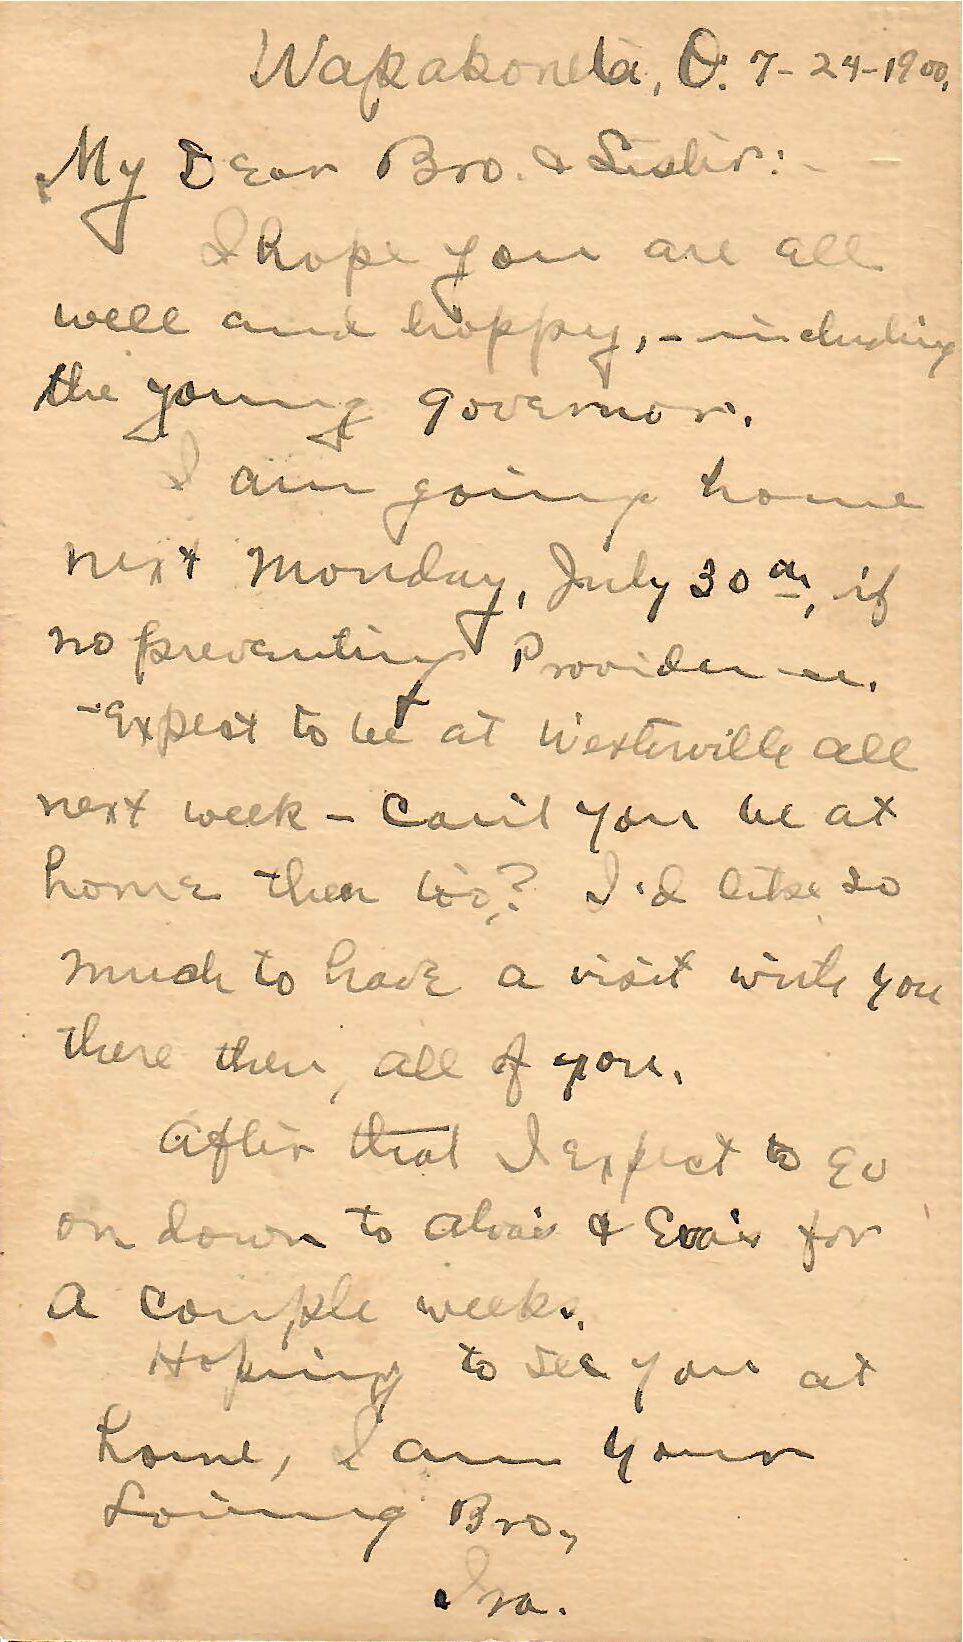 Wapakoneta, O. 7-24-1900.
My Dear Bro. & Sister:-
I hope you are all
well and happy, - including
the young governor.
I am going home
next Monday, July 30th, if
no preventing Providence.
- Expect to be at Westerville all
next week - can't you be at
home then too? I'd like so
much to have a visit with you
there then, all of you.
After that I expect to go
on down to Alva's & Eva's for
a couple weeks.
Hoping to see you at
home, I am your
Loving Bro.,
Ira.